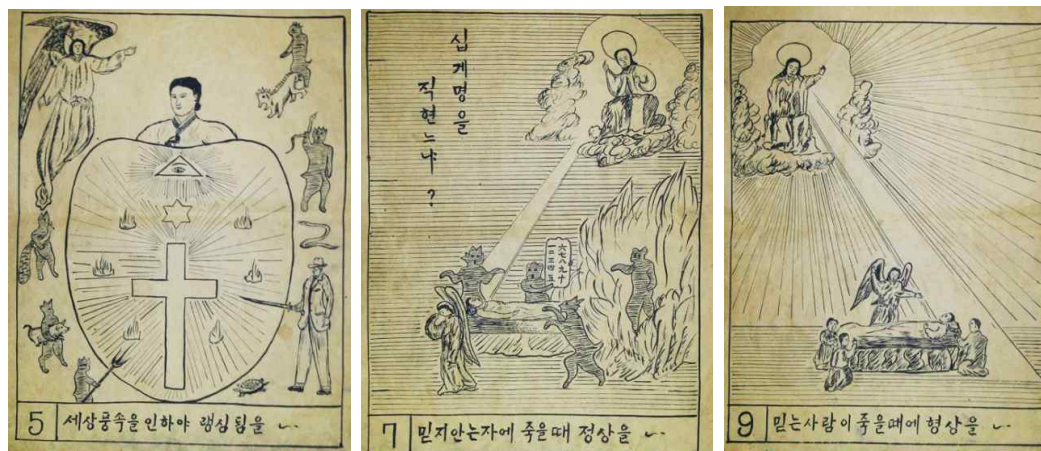 5 세상풍속을인하야 랭심됨을
십게명을
직현느냐?
六七八九十
一二三四五
7 믿지안는자에 죽을때 정상을
9 믿는사람이죽을때에 형상을